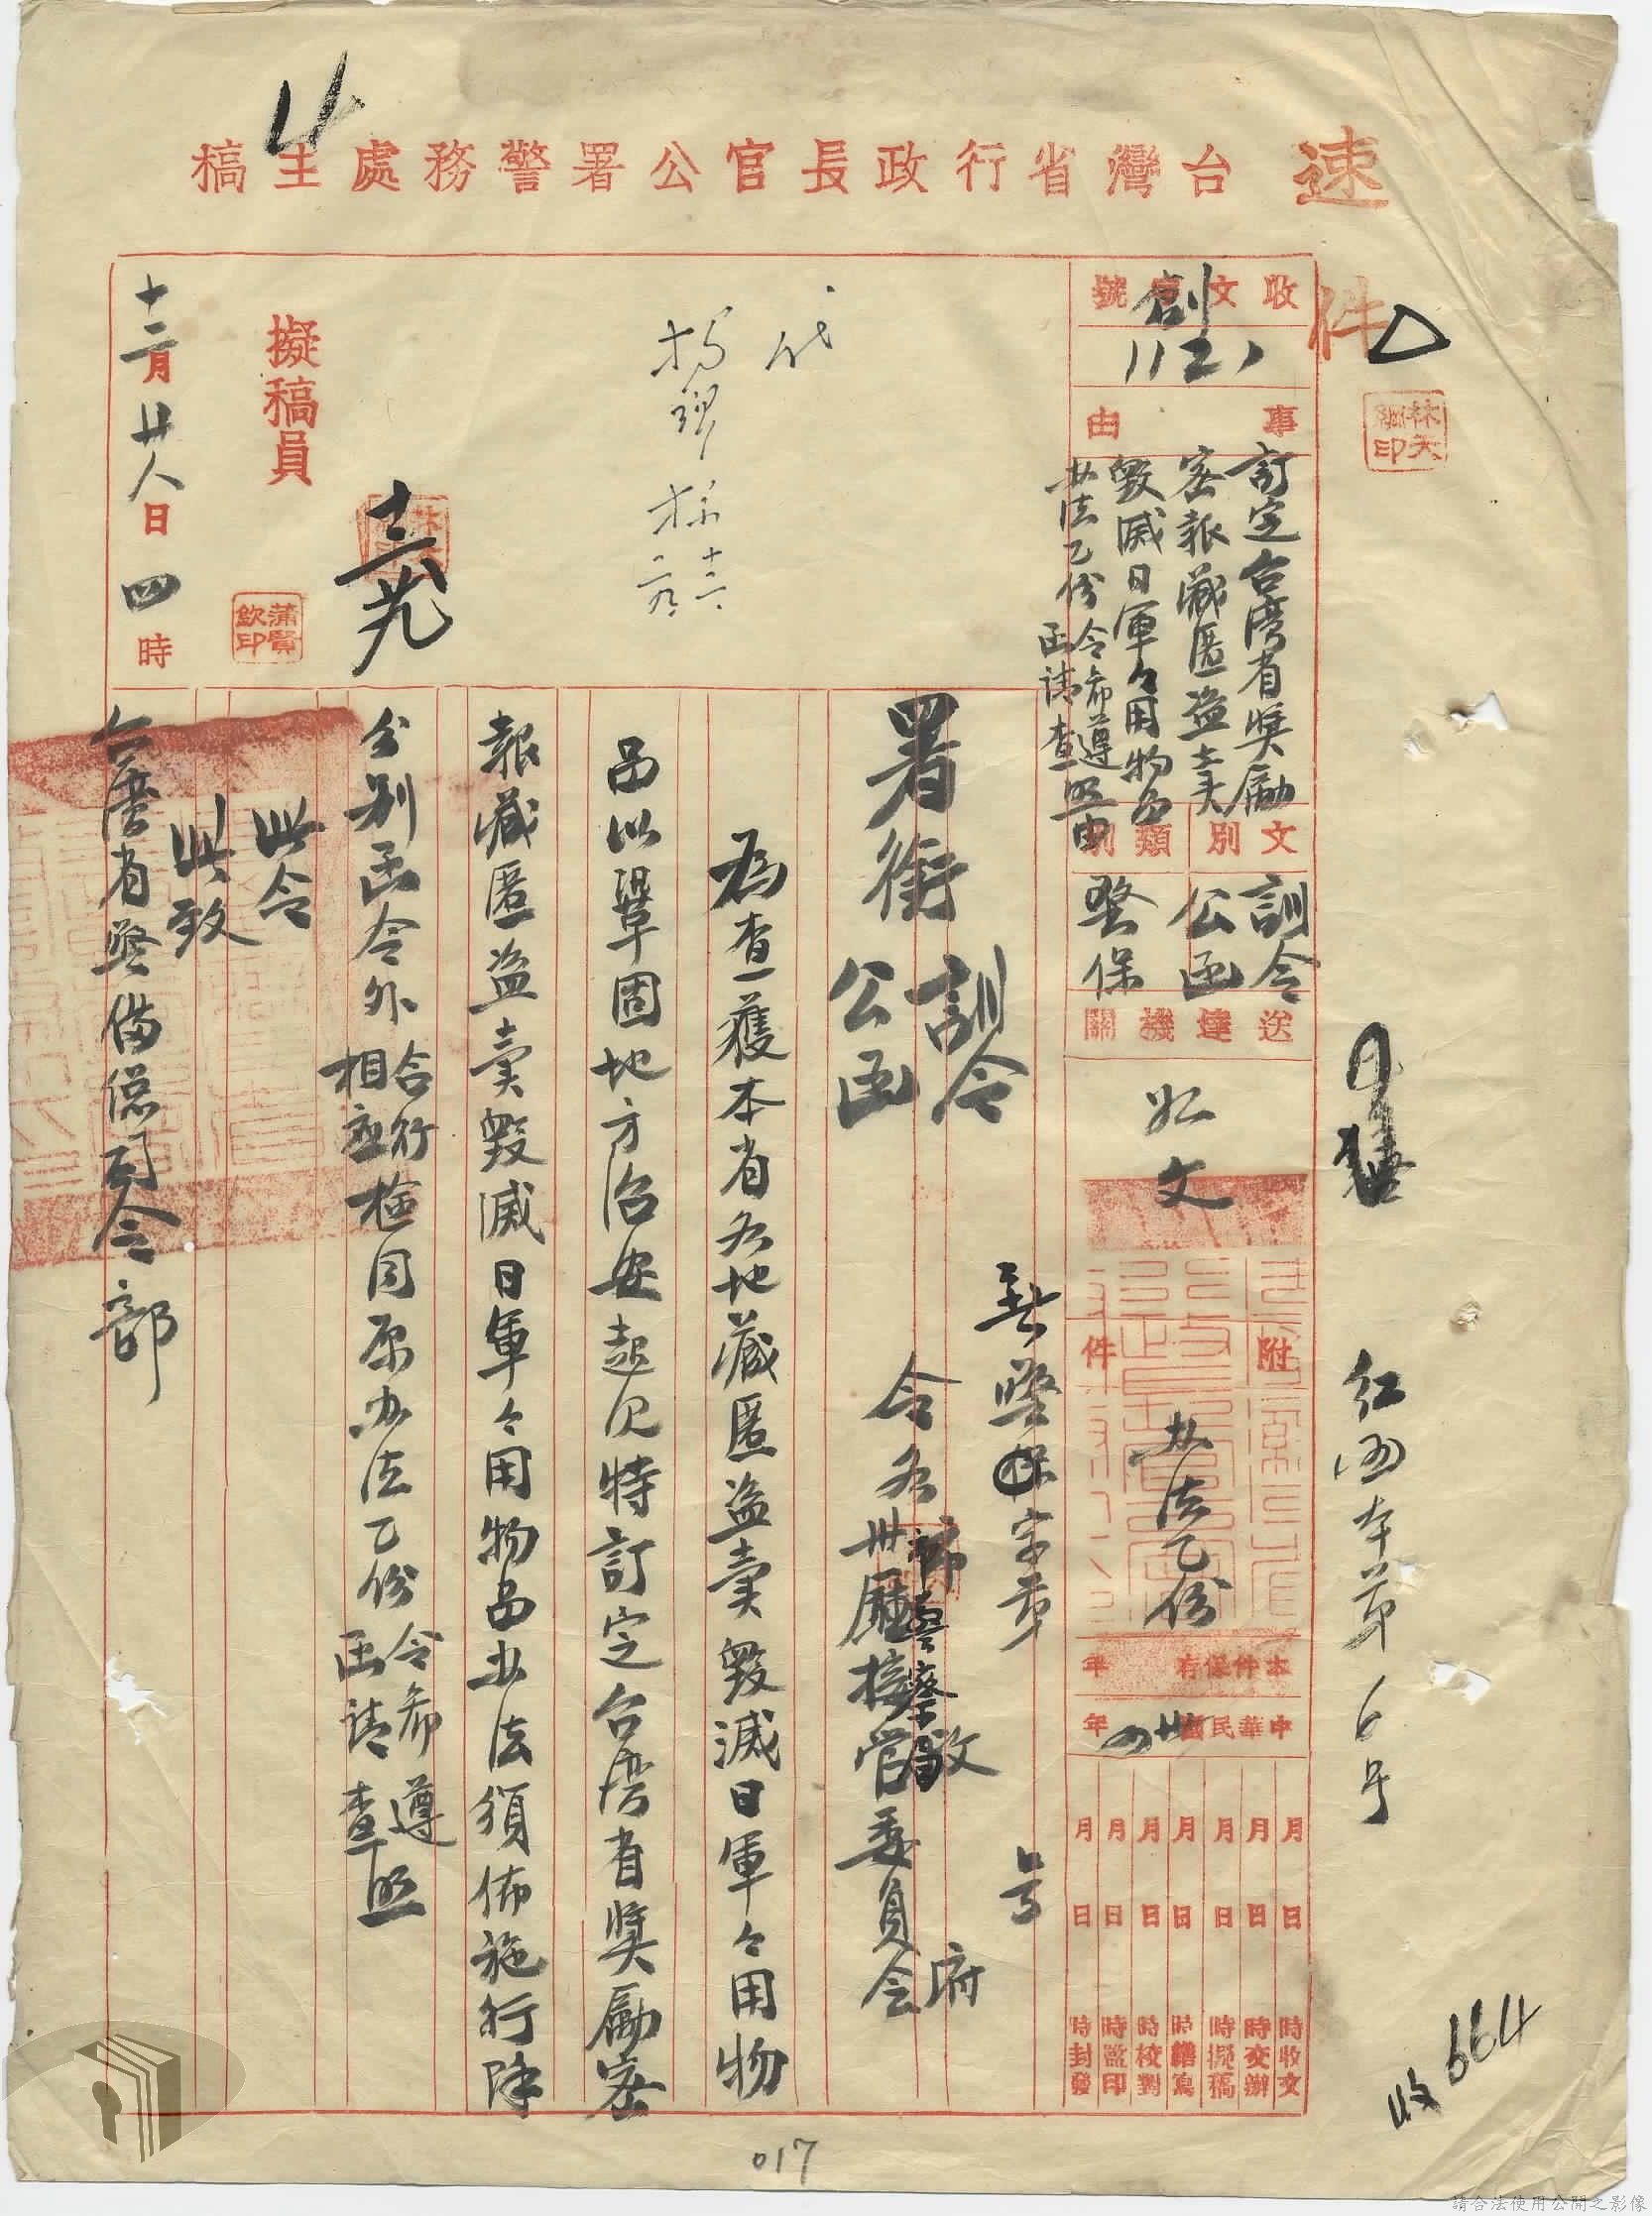 速件
台灣省行政長官公署警務處主稿
收文字號
創
1121
事由
訂定台湾省奬勵
密報藏匿盗卖
毀滅日軍々用物品
办法乙份令希遵照由
函請查
文別
訓令
公函
類別
警保
送達機關
如文
附件
办法乙份
本件保存 年
中華民國卅四年
月 日 時收文
月 日 時交辦
月 日 時擬稿
月 日 時繕寫
月 日 時校對
月 日 時監印
月 日 時封發
代
十二
二九
十二
廿九
擬稿員
蒲賢欽印
十二月廿八日四時
警保字第 号
署銜訓令
公函
令各
市警察局
政府
卅廳接管委員会
為查獲本省各地藏匿盗賣毀滅日軍々用物
品以鞏固地方治安起见特訂定台湾省奬勵密
報藏匿盗賣毀滅日軍々用物品办法須佈施行除
分别函令外合行檢同原办法乙份令希遵照
相應 函請查
此令
此致
台湾省警備總司令部
林天印
红 第6号
收664
017
請合法使用公開之影像